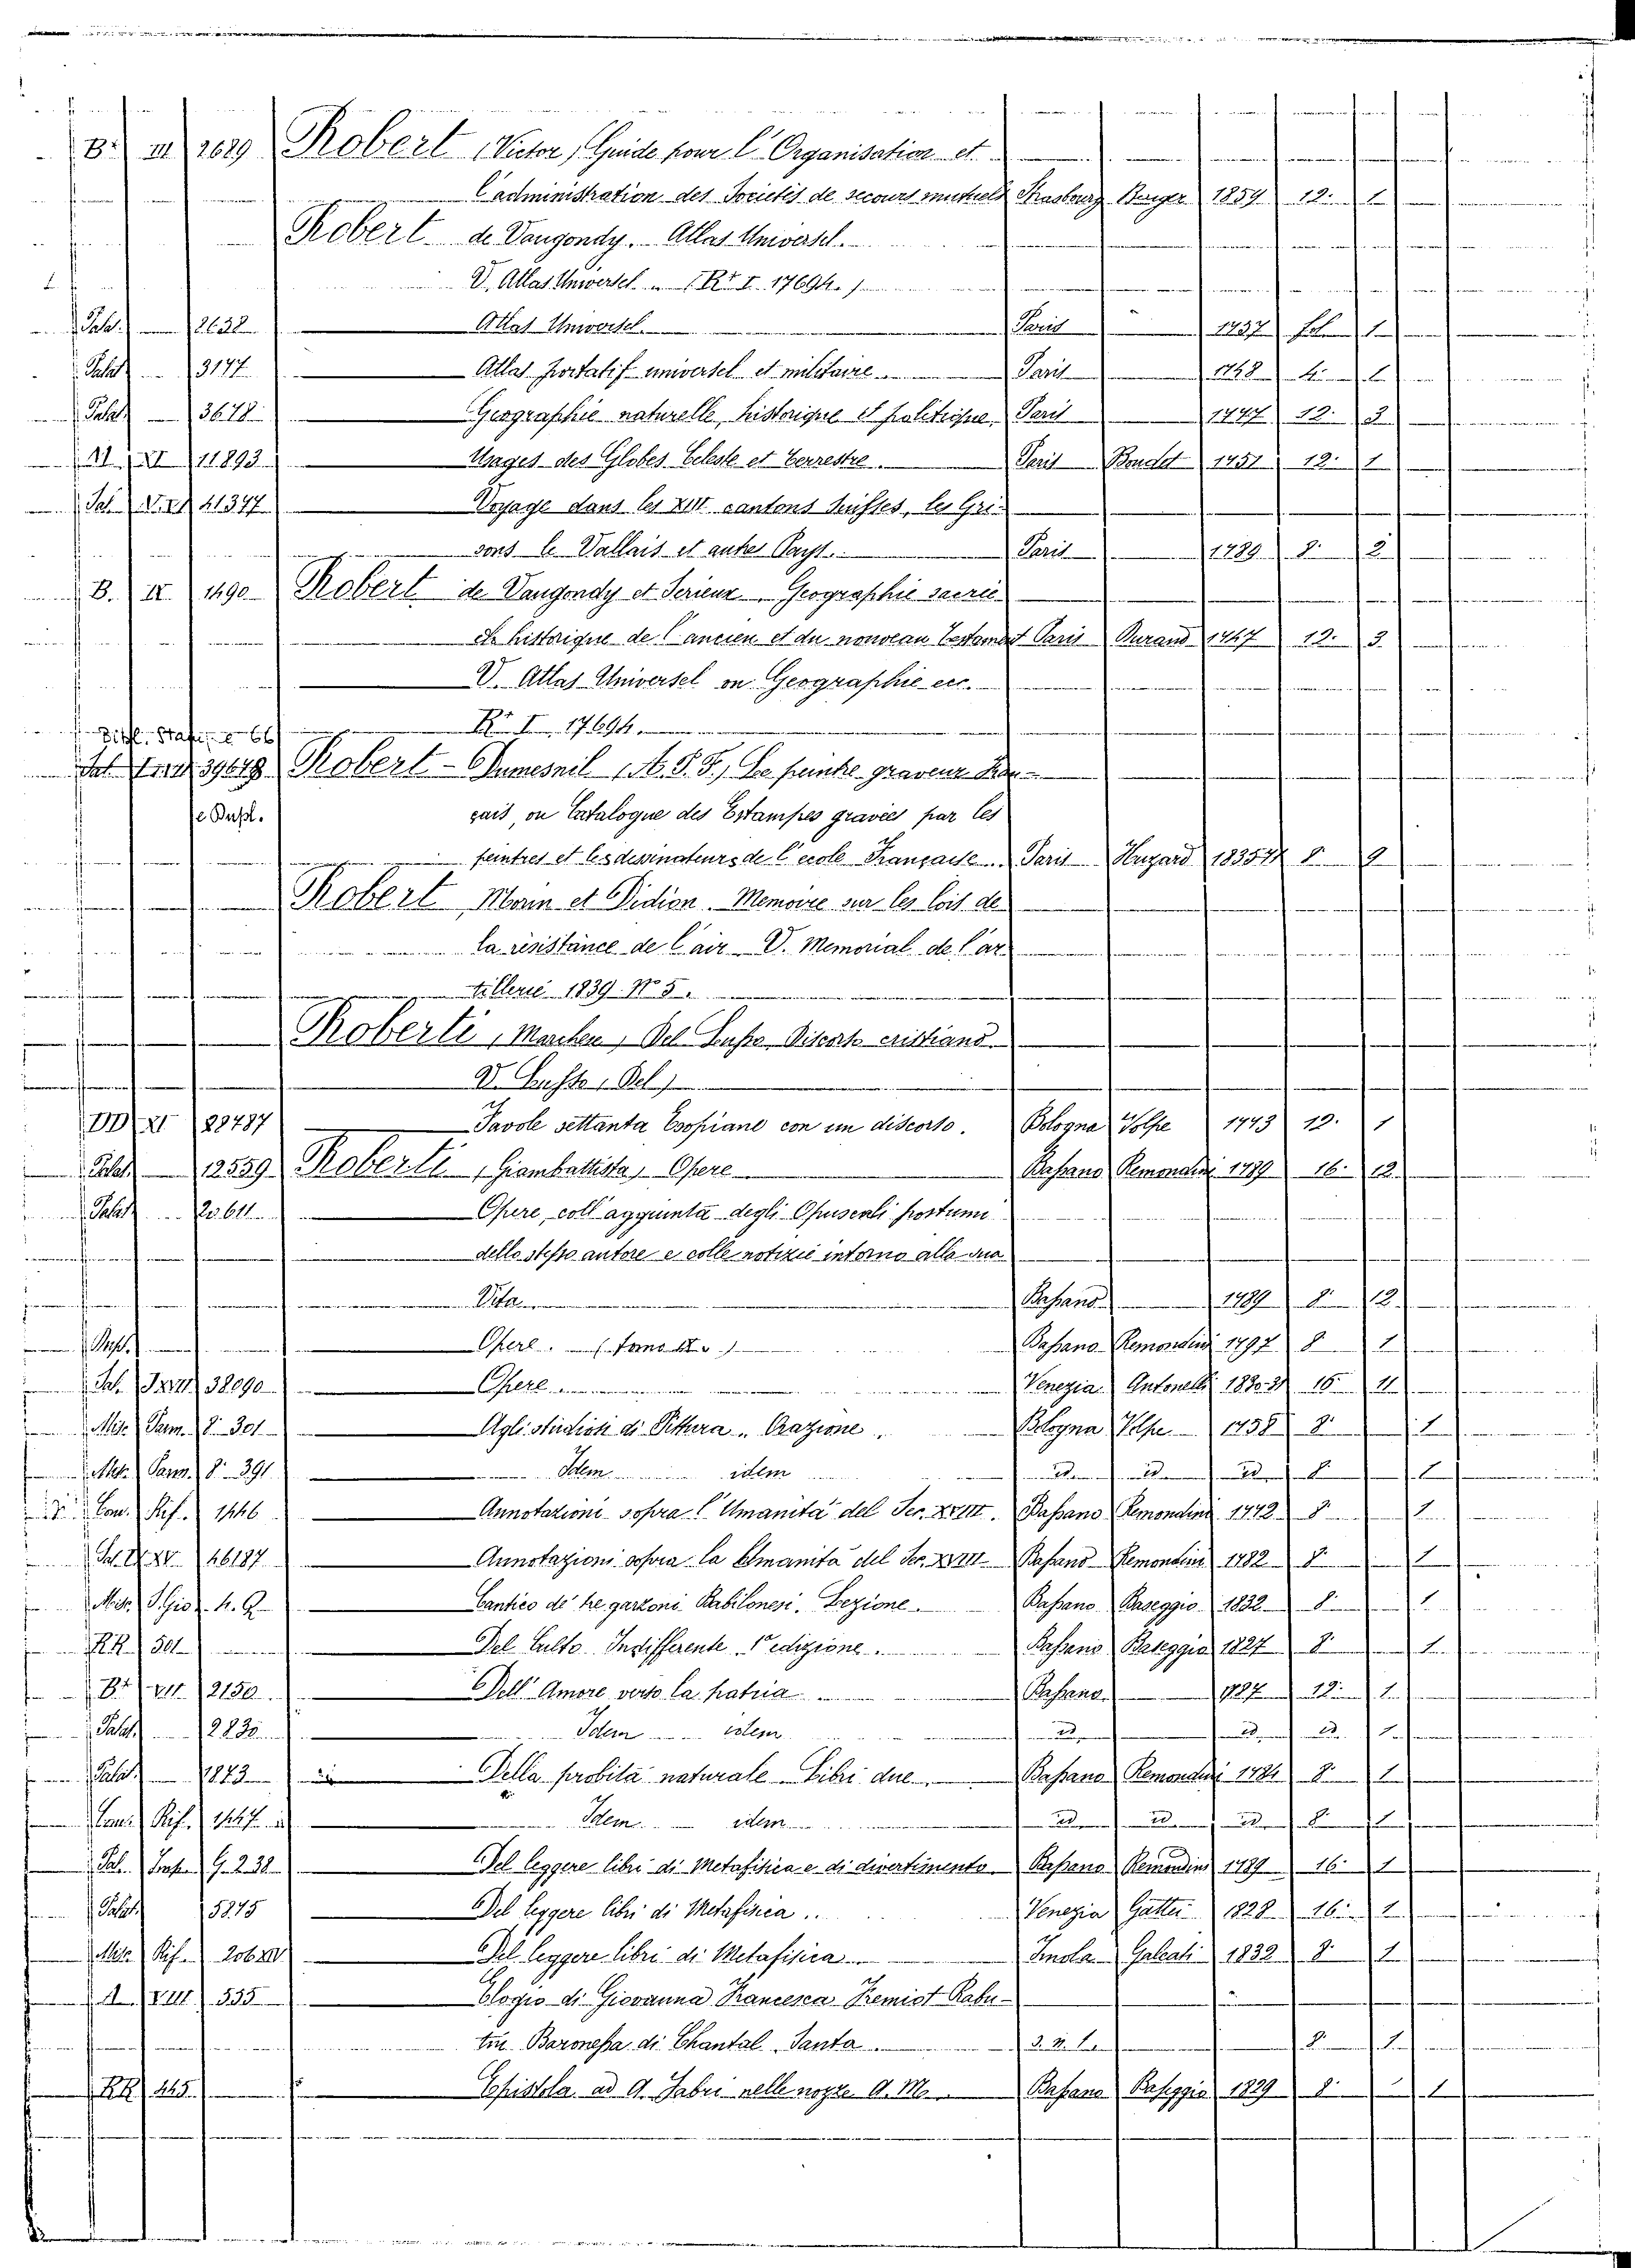 B. III 2629 Robert (Victor) Guide pour l'Organisation et
l'administration des Societés de secours mutuels Strasbourg Berger 1859 12. 1
Robert de Vaugondy. Atlas Universel.
V. Atlas Universel (Rr. I. 17694.)
Palat. 2632 Atlas Universel. Paris 1757 fol. 1
Palat. 3177 Atlas portatif universel et militaire Paris 1748 4. 1
Palat. 3678 Geographie naturelle, historique et politique Paris 12. 3
XI 11893 Usages des Globes Celeste et Terrestre. Paris Boudet 1751 12. 1
Sal. 41377 Voyage dans les XIII cantons suisses, les Gri-
sons le Vallais et autres Pays. Paris 1789 8. 2
B. IV. 1490 Robert de Vaugondy et Serieux Geographie sacrée
et historique de l'ancien et du nouveau Testament Paris Durand 1747 12. 3
V. Atlas Universel ou Geographie ecc.
Rr I 17694
66
39649 Robert-Dumesnil (A. P. F.) Le peintre graveur Fran-
e Dupl. çais, ou Catalogue des Estampes gravées par les
peintres et les dessinateurs de l'ecole Française Paris Huzard 8. 9
Robert, Morin et Didion. Memoire sur les lois de
la résistance de l'air V. Memorial de l'ar-
tillerie 1839 No 5.
Roberti, Marchese, Del Lusso Discorso cristiano.
V. Lusso (Del)
XI 22787 Favole settanta Esopiane con un discorso. Bologna Volpe 1773 12. 1
Palat. 12559 Roberti, Giambattista, Opere Bassano Remondini 1789 16. 12
Palat. 20611 Opere, coll'aggiunta degli Opuscoli postumi
dello stesso autore e colle notizie intorno alla sua
Vita Bassano 1789 8. 12
Opere. (Tomo) Bassano Remondini 1797 8. 1
Sal. 38090 Opere Venezia Antonelli 1830-31 16. 11
Misc. Parm. 8. 301 Agli studiosi di Pittura. Orazione. Bologna Volpe 1758 8. 1
Misc. Parm. 8. 391 Idem idem id. id. id. 8. 1
Con. Rif. 1446 Annotazioni sopra l'Umanità del Sec. XVIII. Bassano Remondini 8. 1
46187 Annotazioni sopra la Umanità del Sec. XVIII Bassano Remondini 1782 8. 1
Misc. S. Gio. h. 9 Cantico de' tre garzoni Babilonesi. Lezione. Bassano Baseggio 1832 8. 1
RR. 501 Del Culto Indifferente 1a edizione. Bassano Baseggio 1827 8. 1
B. VII 2130 Dell'Amore verso la patria Bassano 1787 12. 1
Palat. 2830 Idem idem id. id. id. 1
Palat. 1873 Della probità naturale Libri due. Bassano Remondini 1784 8. 1
Con. Rif. 1447 Idem idem id. id. id. 8. 1
Sal. G. 238 Del leggere libri di Metafisica e di divertimento Bassano Remondini 1789 16. 1
Palat. 5875 Del leggere libri di Metafisica.. Venezia Gattei 1828 16. 1
Misc. Rif. 206 Del leggere libri di Metafisica Imola Galeati 1832 8. 1
A VIII 535 Elogio di Giovanna Francesca Fremiot Rabu-
tin Baronessa di Chantal Santa. S. N. L. 8. 1
RR. 445 Epistola ad A. Fabri nelle nozze A. M. Bassano Baseggio 1829 8. 1